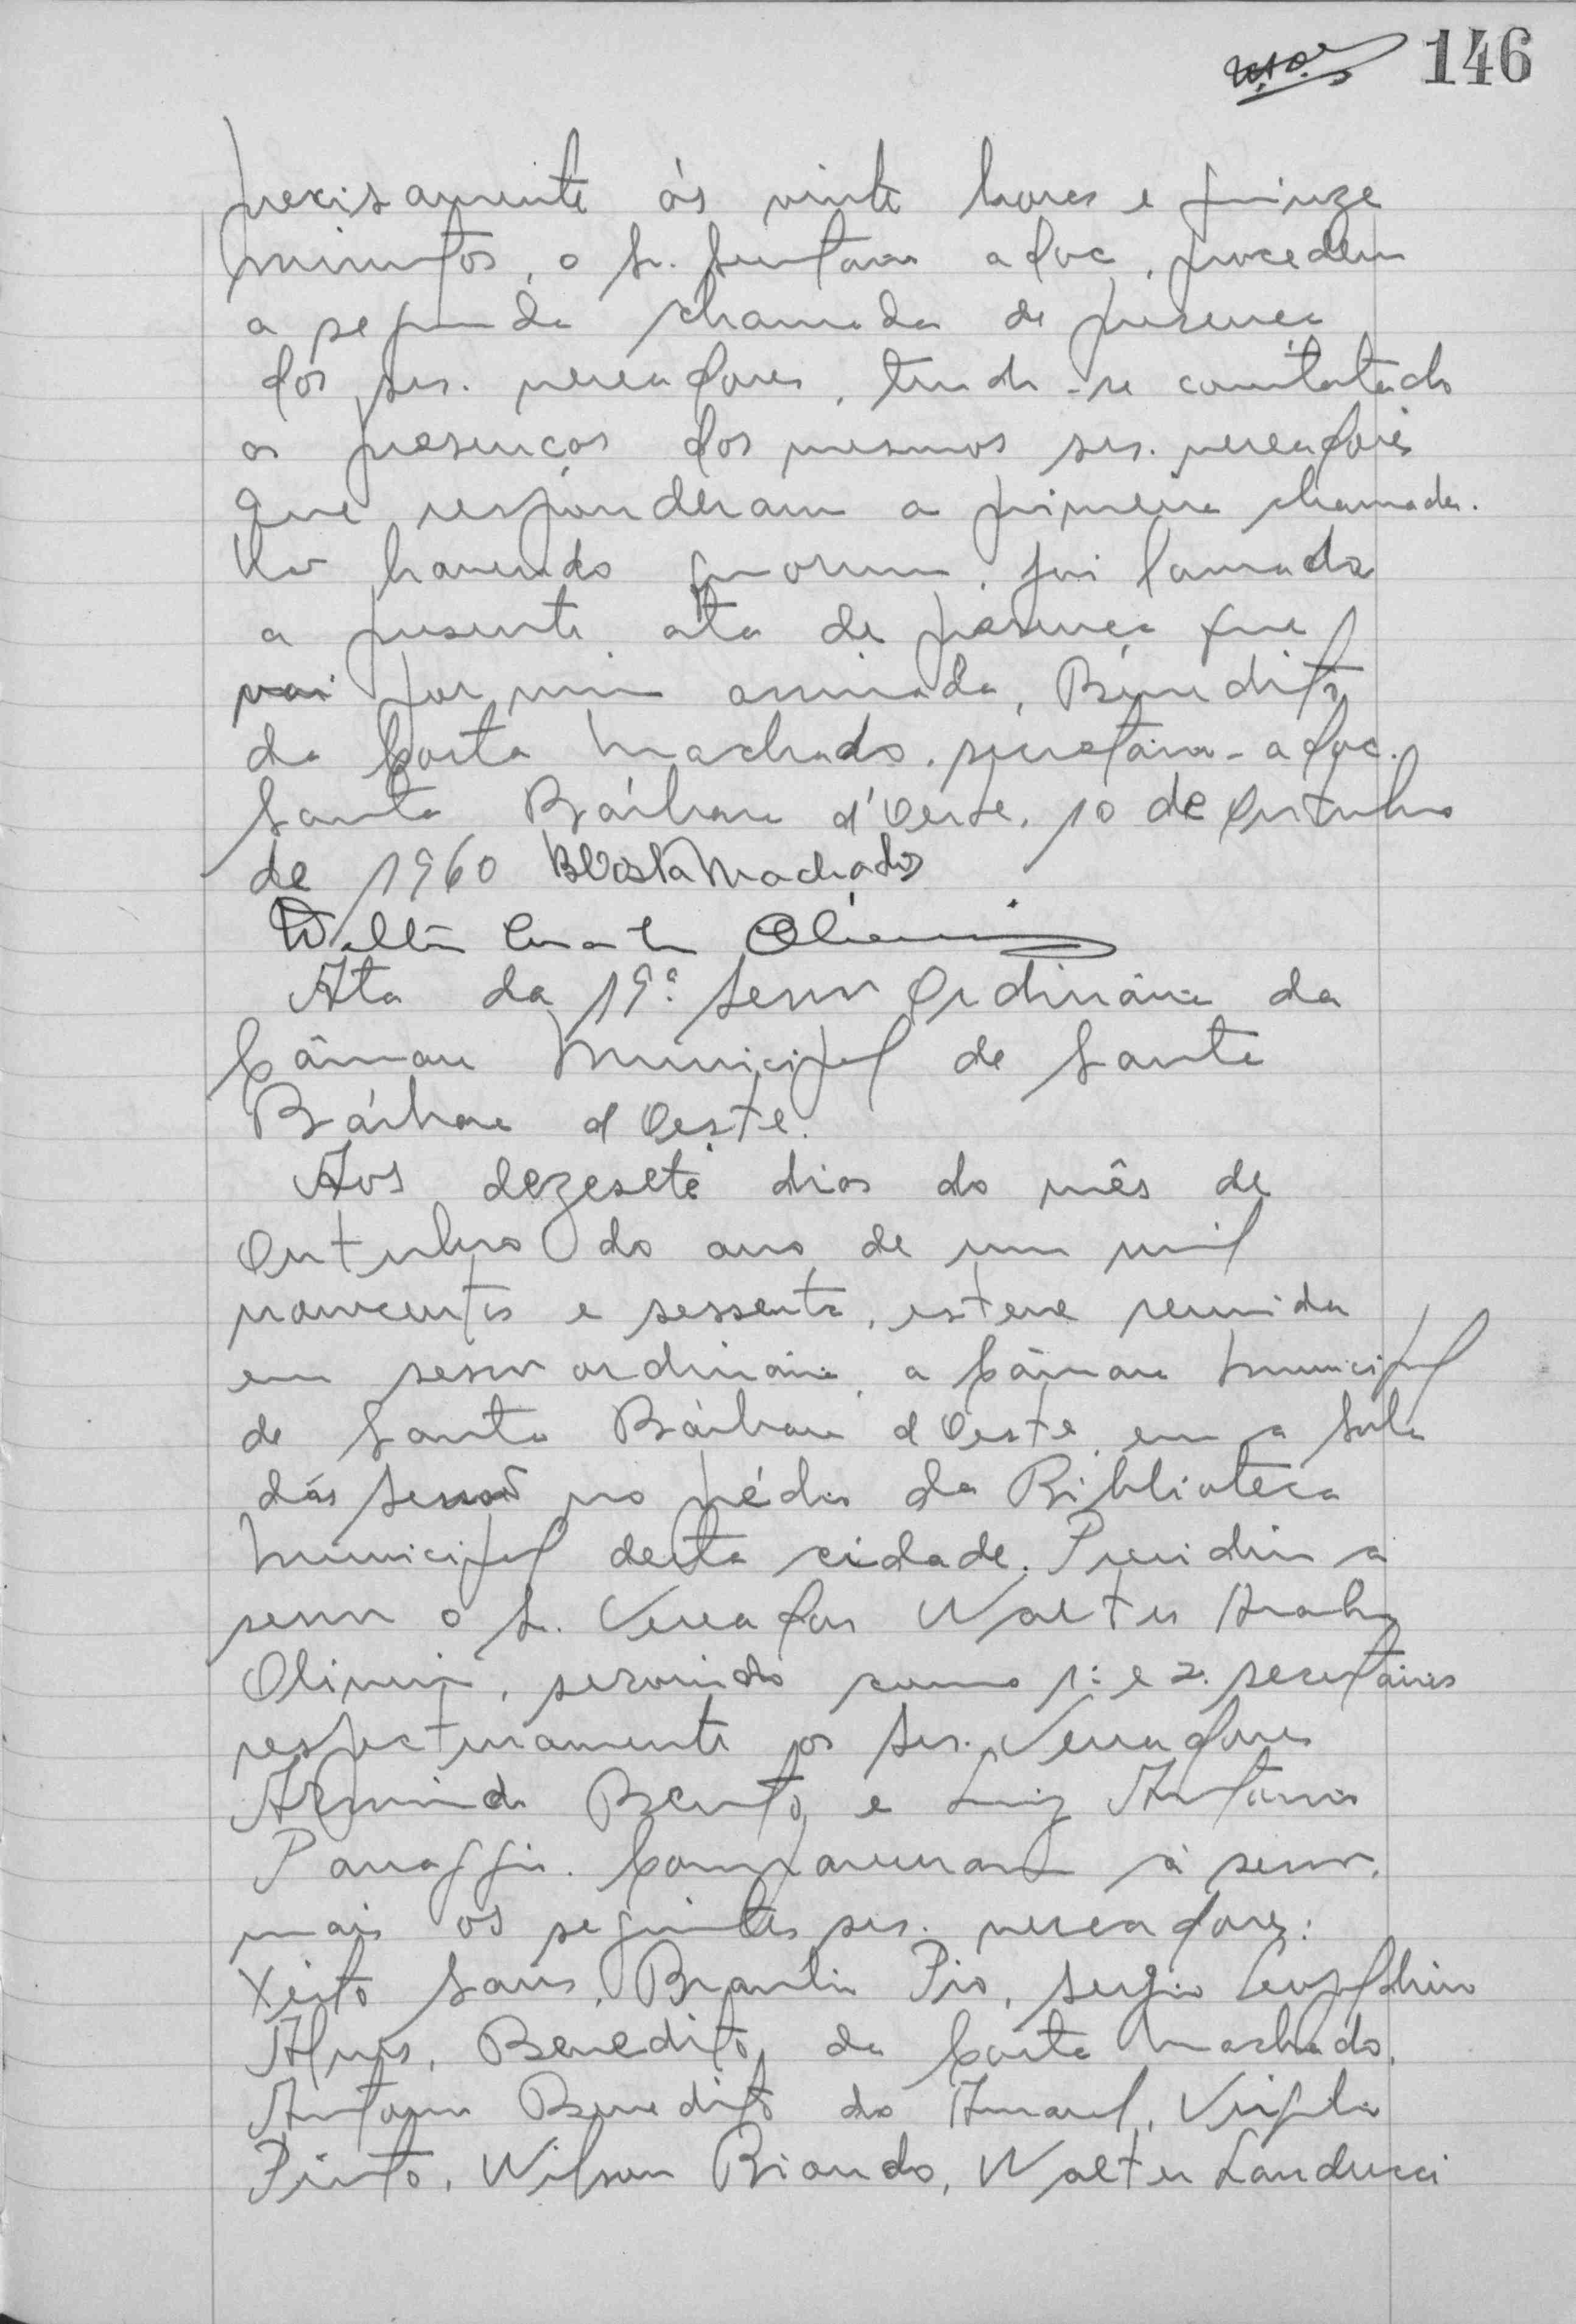 146
precisamente ás vinte horas e quinze
minutos, o Sr. Secretário adoc, procedeu
a segunda chamada de presença
dos srs. vereadores, tendo-se constatado
as presenças dos mesmos srs. vereadores
que responderam a primeira chamada.
Não havendo quorum, foi lavrada
a presente ata de presença que
vai por mim assinada, Benedito
da Costa Machado, secretário-adoc.
Santa Bárbara d'Oeste, 10 de Outubro
de 1960 BCosta Machado
Walter Oliveira
Ata da 19ª Sessão Ordinária da
Câmara Municipal de Santa
Bárbara d'Oeste.
Aos dezesete dias do mês de
Outubro do ano de um mil
novecentos e sessenta, esteve reunida
em sessão ordinária, a Câmara Municipal
de Santa Bárbara d'Oeste, em a sala
das sessões no prédio da Biblioteca
Municipal desta cidade. Presidiu a
sessão o Sr. Vereador Walter
Oliveira, servindo como 1º e 2º secretários
respectivamente os Srs. Vereadores
Armindo Bento e Luiz Antonio
Panaggio. Compareceram á sessão,
mais os seguintes srs. vereadores:
Xisto Sans, Braulio Pio, Sergio Leopoldino
Alves, Benedito da Costa Machado,
Antonio Benedito do Amaral, Virgilio
Pinto, Wilson Biondo, Walter Landucci